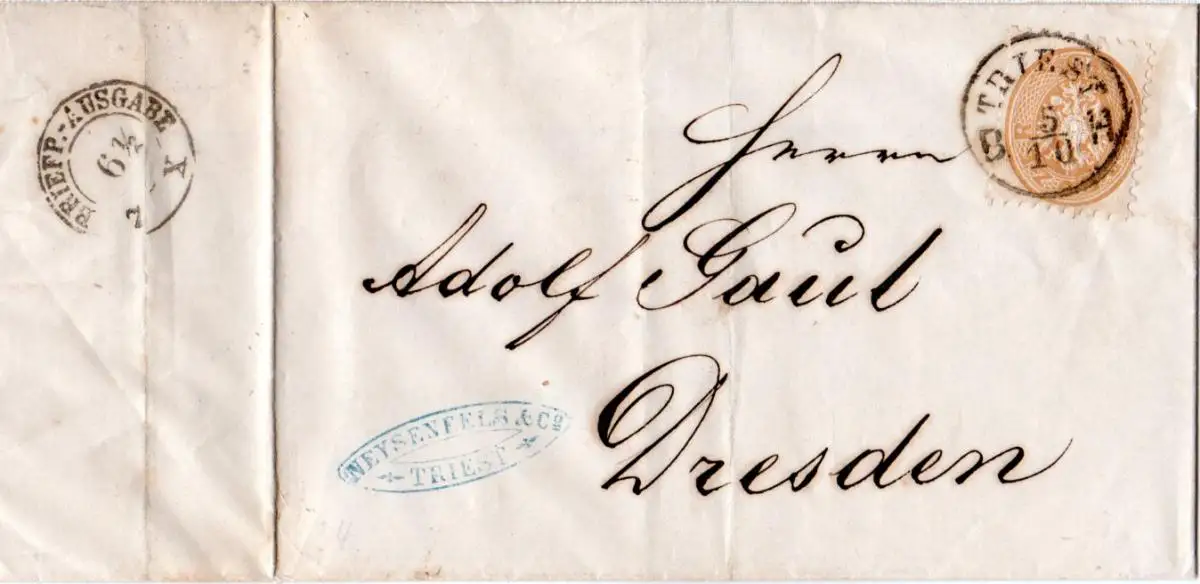 BRIEFP.-AUSGABE X
6½
7
TRIEST
5
10
Herrn
Adolf Gaul
Dresden
WEYSENFELS & Co
TRIEST